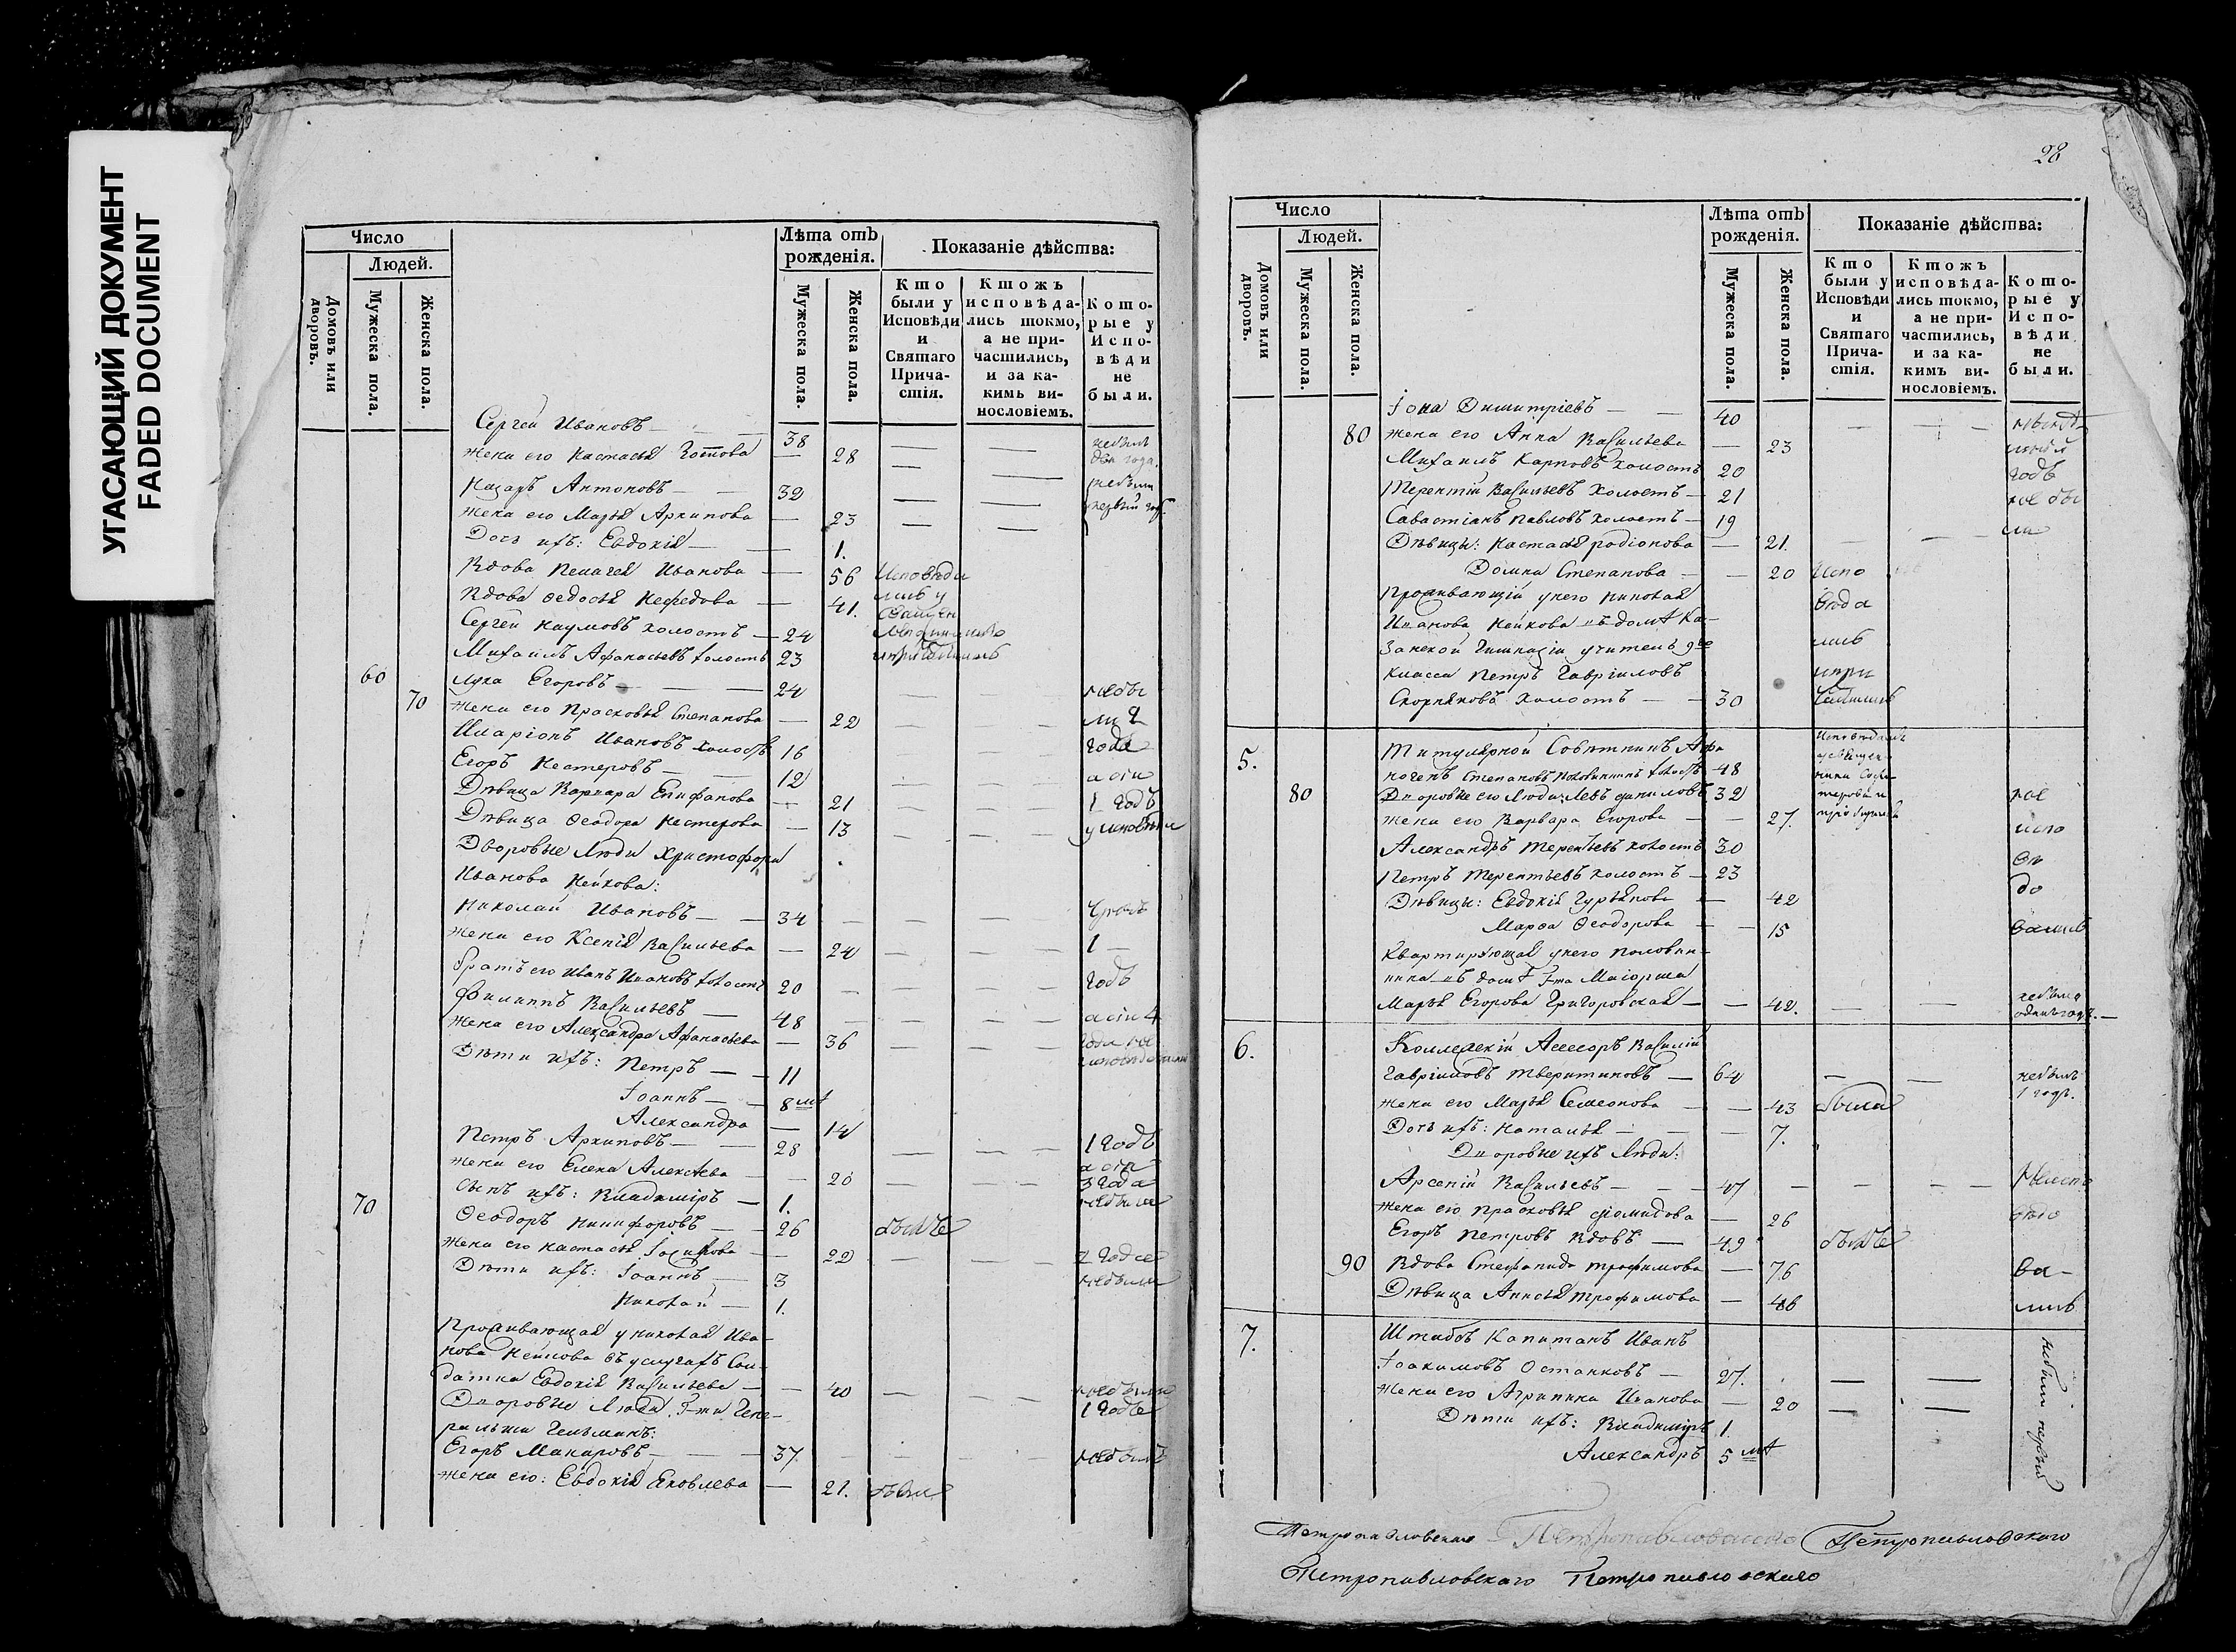 УГАСАЮЩИЙ ДОКУМЕНТ
FADED DOCUMENT
Число
Людей.
Домовъ или дворовъ.
Мужеска пола.
Женска пола.
Лѣта отъ рожденія.
Мужеска пола.
Женска пола.
Показаніе дѣйства:
Кто были у Исповѣди и Святаго Причастія.
Ктожъ исповѣдались токмо, а не причастились, и за какимъ винословіемъ.
Которые у Исповѣди не были.
Сергей Ивановъ — 38 небылъ
Жена его Настасья — 28 два года
Назаръ Антоновъ — 32 небыли
Жена его Марья Архипова — 23 первый
Дочь ихъ: Евдокія — 1.
Вдова Пелагея Иванова — 56
Вдова Ѳедосья Нефедова — 41.
Сергей Наумовъ холостъ — 24
Михаилъ Афанасьевъ холостъ 23
60 Лука Егоровъ — 24 небы
70 Жена его Прасковья Степанова — 22 ли 2
Иларіонъ Ивановъ холостъ 16 года
Егоръ Нестеровъ — 12 а сіи
Дѣвица Варвара Епифанова — 21 1 годъ
Дѣвица Ѳеодора Нестерова — 13
Дворовые Люди Христофора
Иванова Нейкова:
Николай Ивановъ — 34
Жена его Ксенія Васильева — 24 1 —
Братъ его Иванъ Ивановъ холостъ 20 годъ
Филиппъ Васильевъ — 48 а сіи 4
Жена его Александра Афанасьева — 36 года не
Дѣти ихъ: Петръ — 11
Іоаннъ — 8 мѣ
Александра — 14
Петръ Архиповъ — 28 1 годъ
Жена его Елена Алексѣева — 20 а сіи 3 года
70 Сынъ ихъ: Владиміръ — 1. небыли
Ѳеодоръ Никифоровъ — 26 былъ
Жена его Настасья Іосифова — 22
Дѣти ихъ: Іоаннъ — 3 небыли
Николай — 1.
Проживающая у Николая Ива-
нова Нейкова въ услугахъ Сол-
датка Евдокія Васильева — 40 небыла
Дворовые Люди Г-жи Гене- 1 годъ
ральши Гельманъ:
Егоръ Макаровъ — 37. небылъ
Жена его: Евдокія Яковлева — 21. была
28
Число
Людей.
Домовъ или дворовъ.
Мужеска пола.
Женска пола.
Лѣта отъ рожденія.
Мужеска пола.
Женска пола.
Показаніе дѣйства:
Кто были у Исповѣди и Святаго Причастія.
Ктожъ исповѣдались токмо, а не причастились, и за какимъ винословіемъ.
Которые у Исповѣди не были.
Іона Димитріевъ — 40
80 Жена его Анна Васильева — 23
Михаилъ Карповъ холостъ 20 годъ
Терентій Васильевъ холостъ — 21 не бы
Савастіанъ Павловъ холостъ — 19 ли
Дѣвицы: Настасья Родіонова — 21.
Домна Степанова — 20 Испо
Проживающій у него Николая вѣда
Иванова Нейкова въ домѣ Ка-
занской Гимназіи учитель 9го лись
класса Петръ Гавріиловъ и при
Скорняковъ холостъ — 30 частились
5. Титулярной Совѣтникъ Афи
ногенъ Степановъ Половинкинъ холостъ 48
80 Дворовые его Люди: Левъ Даниловъ 32 не
Жена его Варвара Егорова — 27. испо
Александръ Терентьевъ холостъ 30 вѣ
Петръ Терентьевъ холостъ — 23 до
Дѣвицы: Евдокія Гурьянова — 42
Марѳа Ѳеодорова — 15 вались
Квартирующая у него Половин-
кина въ домѣ Г-жа Маіорша
Марья Егорова Григоровская — 42. небыла одинъ годъ. —
6. Коллежскій Асессоръ Василій
Гавріиловъ Тверитиновъ — 64 небылъ 1 годъ.
Жена его Марья Семеонова — 43 была
Дочь ихъ: Наталья — 7.
Дворовые ихъ Люди:
Арсеній Васильевъ — 47 Неиспо
Жена его Прасковья Діомидова — 26 вѣдо
Егоръ Петровъ вдовъ — 49 былъ
90 Вдова Стефанида Трофимова — 76 ва-
Дѣвица Анисья Трофимова — 46 лись
7. Штабсъ Капитанъ Иванъ
Іоакимовъ Останковъ — 27.
Жена его Агрипина Иванова — 20
Дѣти ихъ: Владиміръ 1.
Александръ 5 мѣ
небыли первый
Петропавловскаго Петропавловскаго Петропавловскаго
Петропавловскаго Петропавловскаго